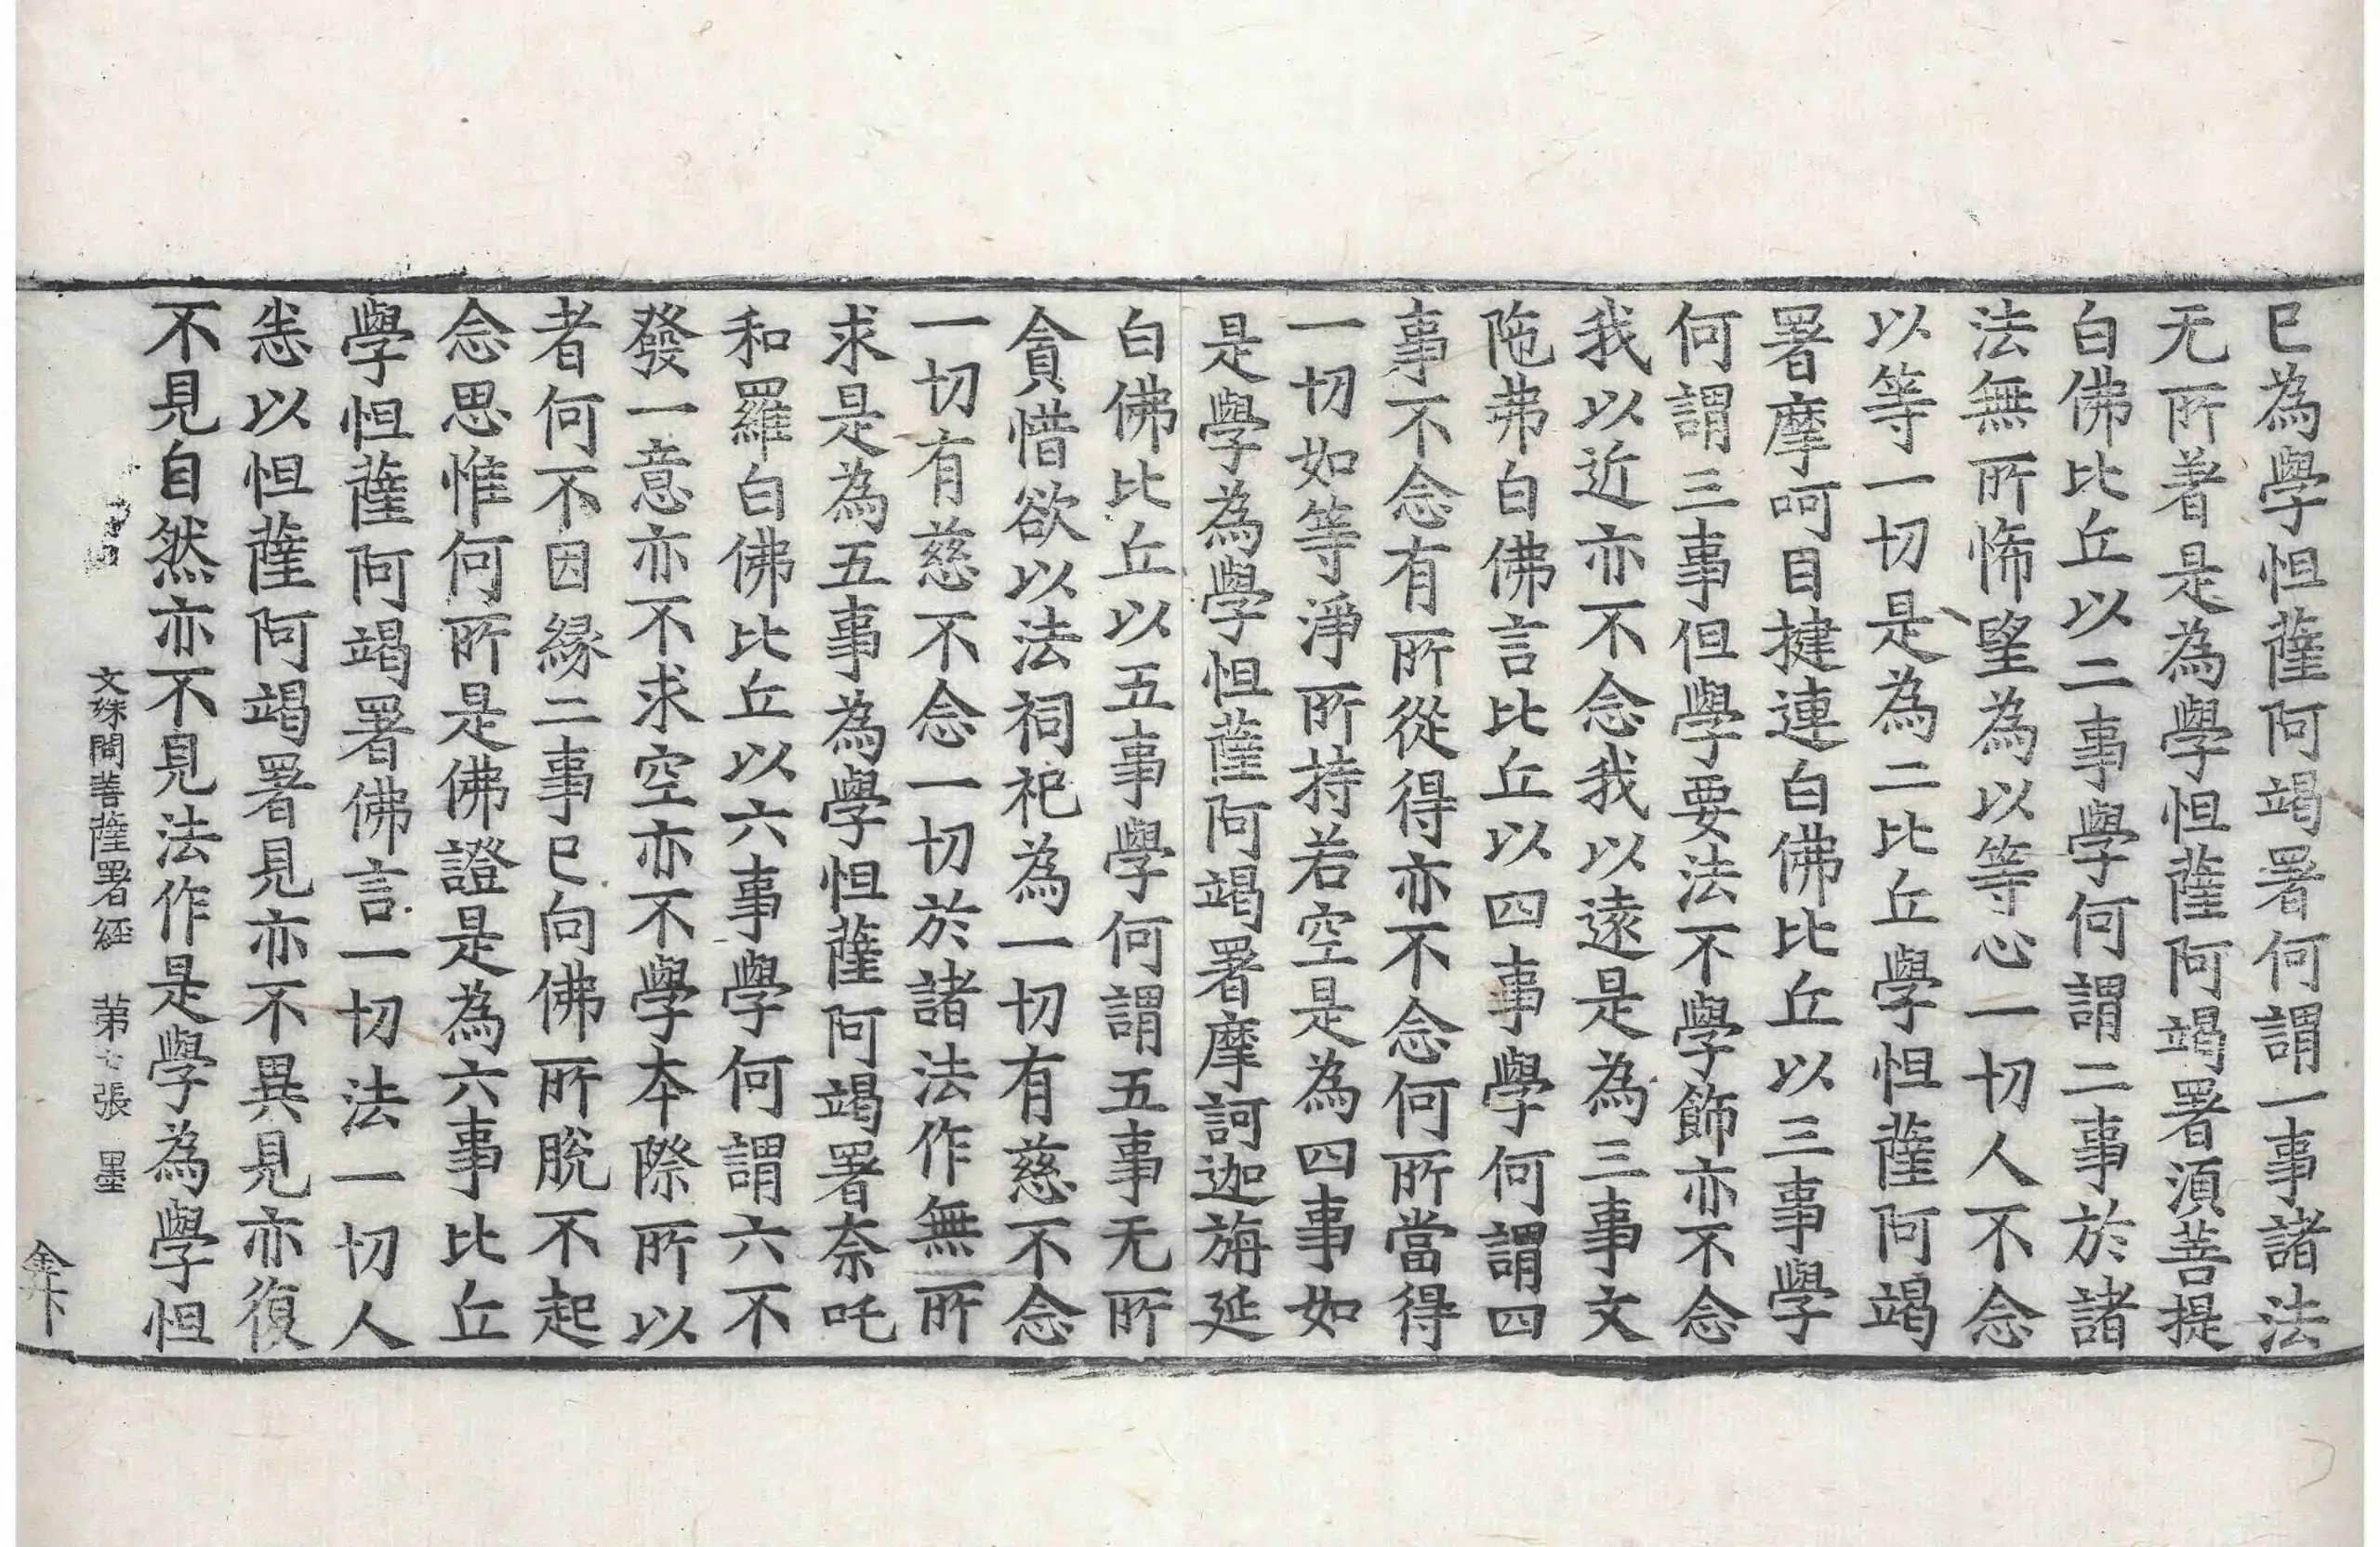 已為學怛薩阿竭署何謂一事諸法
无所著是為學怛薩阿竭署湏菩提
白佛比丘以二事學何謂二事於諸
法無所悕望為以等心一切人不念
以等一切是為二比丘學怛薩阿竭
署摩呵目揵連白佛比丘以三事學
何謂三事但學要法不學飾亦不念
我以近亦不念我以遠是為三事文
陁弗白佛言比丘以四事學何謂四
事不念有所從得亦不念何所當得
一切如等淨所持若空是為四事如
是學為學怛薩阿竭署摩訶迦旃延
白佛比丘以五事學何謂五事无所
貪惜欲以法祠祀為一切有慈不念
一切有慈不念一切於諸法作無所
求是為五事為學怛薩阿竭署奈吒
和羅白佛比丘以六事學何謂六不
發一意亦不求空亦不學本際所以
者何不因緣二事已向佛所脫不起
念思惟何所是佛證是為六事比丘
學怛薩阿竭署佛言一切法一切人
恙以怛薩阿竭署見亦不異見亦復
不見自然亦不見法作是學為學怛
文殊問菩薩署經 第七張 墨